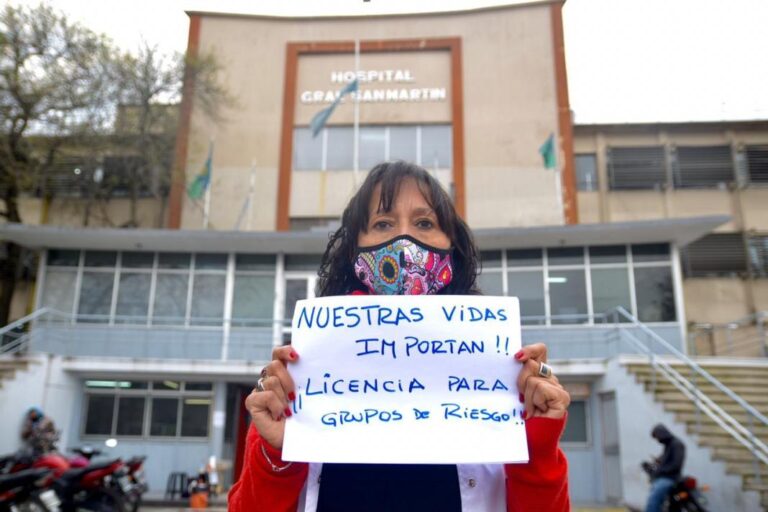 HOSPITAL
GRAL SANMARTIN
NUESTRAS VIDAS
IMPORTAN!!
¡¡LICENCIA PARA
GRUPOS DE RIESGO!!